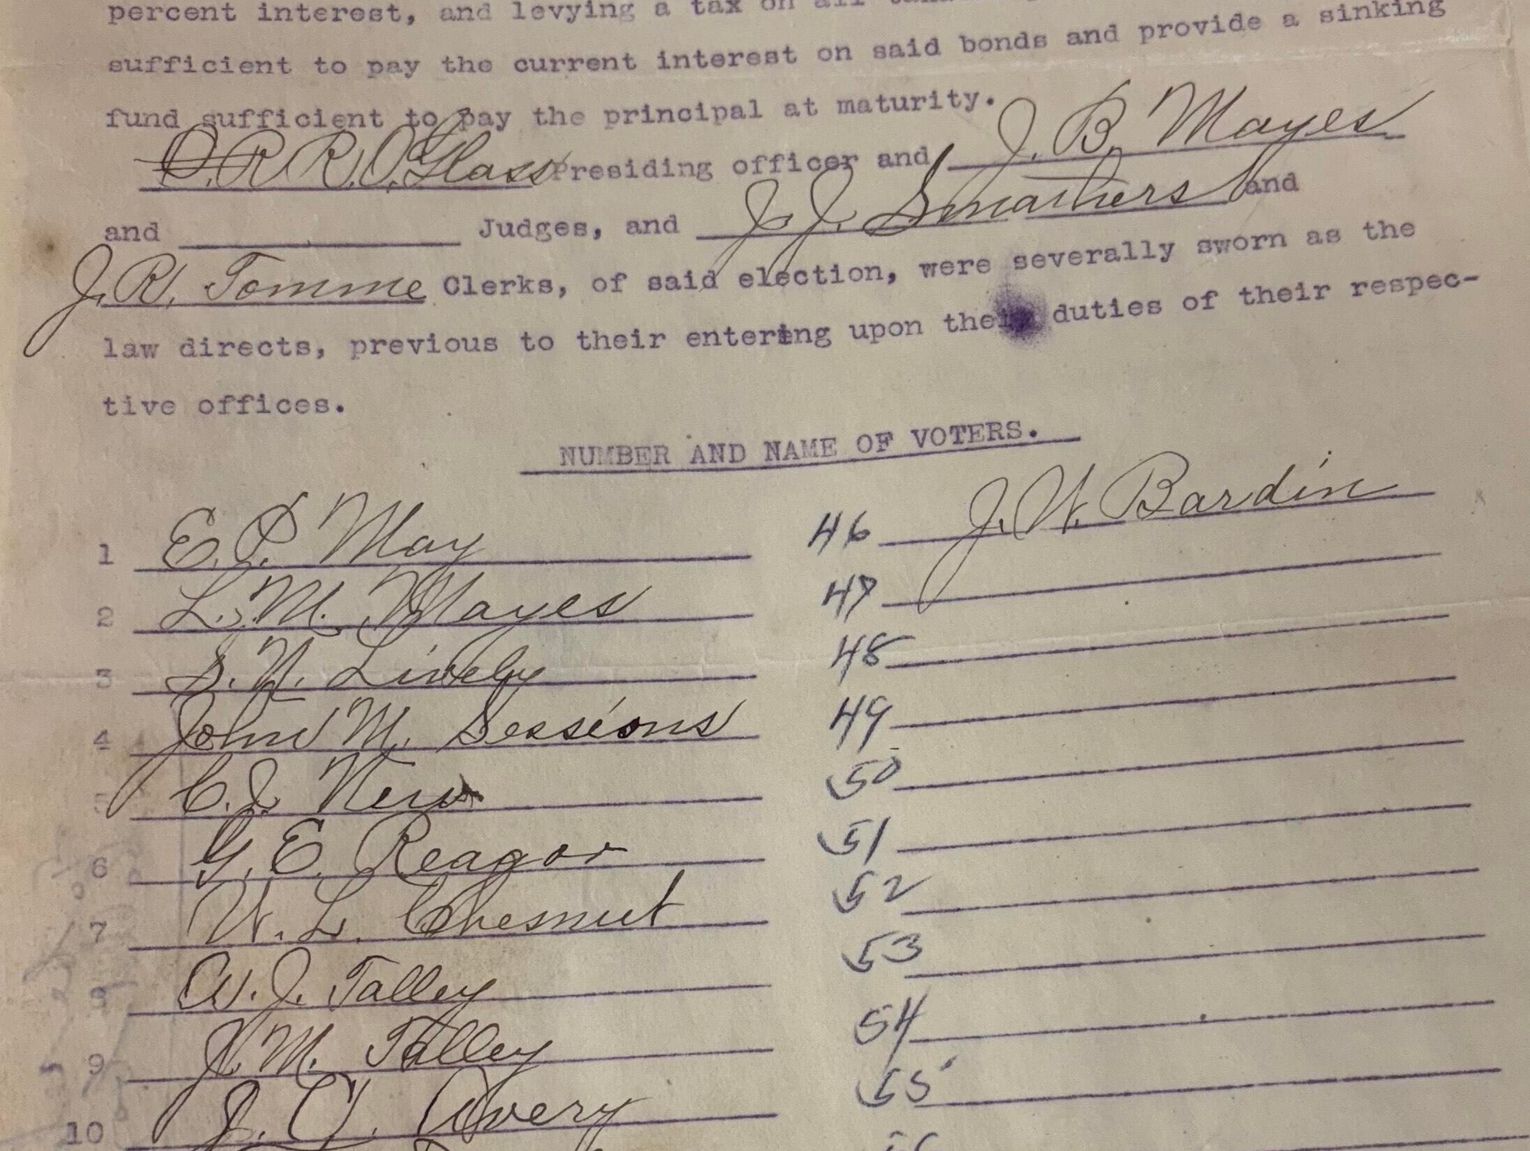 percent interest, and levying a tax on all
sufficient to pay the current interest on said bonds and provide a sinking
fund sufficient to pay the principal at maturity.
R. O. Glass Presiding officer and J. B. Mayes
and Judges, and J. J. Smathers and
J. R. Tomme Clerks, of said election, were severally sworn as the
law directs, previous to their entering upon their duties of their respec-
tive offices.
NUMBER AND NAME OF VOTERS.
1 E. P. May
2 L. M. Mayes
3 S. N. Lively
4 John M. Sessions
5 C. J. New
6 G. E. Reagor
7 W. L. Chesnut
8 W. J. Talley
9 J. M. Talley
10 J. Avery
46 J. W. Bardin
47
48
49
50
51
52
53
54
55